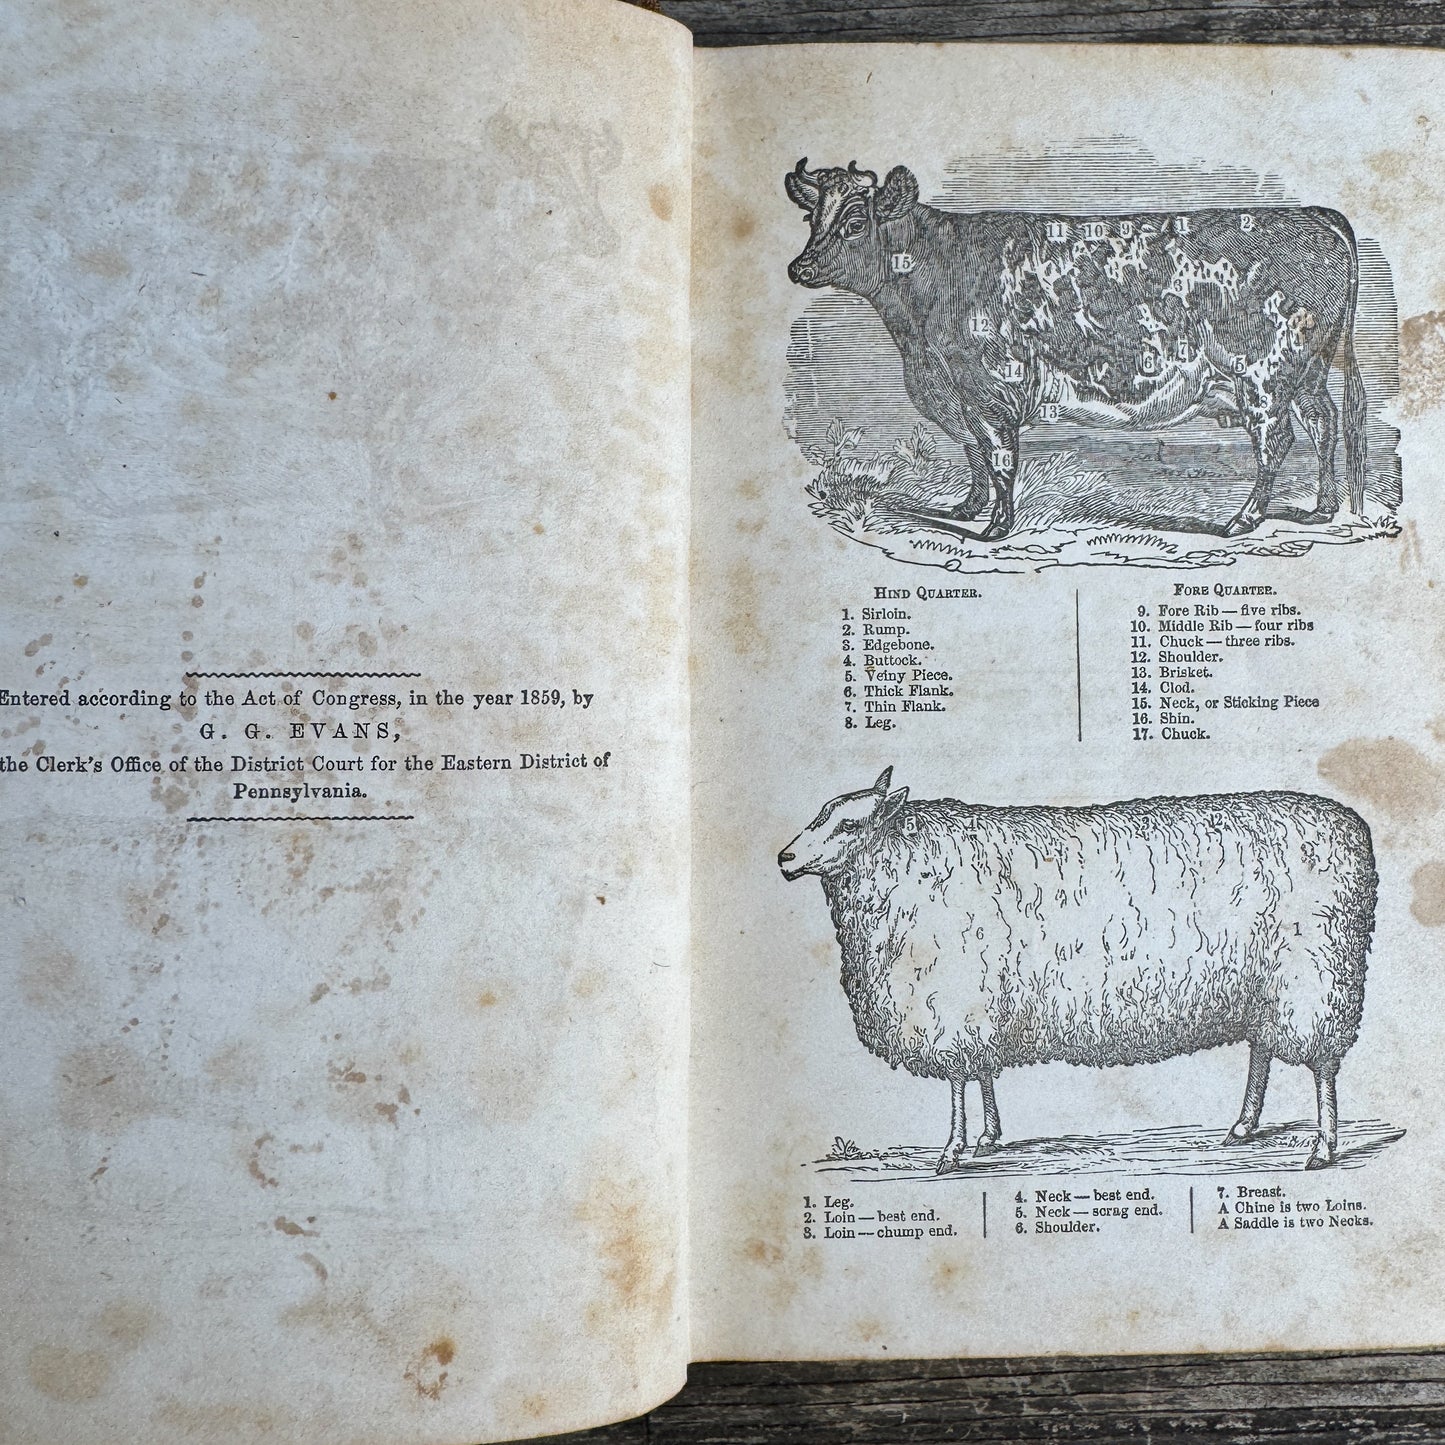 Entered according to the Act of Congress, in the year 1859, by
G. G. EVANS,
the Clerk's Office of the District Court for the Eastern District of
Pennsylvania.
11 10 9 1 2
15
3
12
4
7
6 5
14
8
13
16
HIND QUARTER.
1. Sirloin.
2. Rump.
3. Edgebone.
4. Buttock.
5. Veiny Piece.
6. Thick Flank.
7. Thin Flank.
8. Leg.
FORE QUARTER.
9. Fore Rib — five ribs.
10. Middle Rib — four ribs
11. Chuck — three ribs.
12. Shoulder.
13. Brisket.
14. Clod.
15. Neck, or Sticking Piece
16. Shin.
17. Chuck.
5 4 3 2
6 1
7
1. Leg.
2. Loin — best end.
3. Loin — chump end.
4. Neck — best end.
5. Neck — scrag end.
6. Shoulder.
7. Breast.
A Chine is two Loins.
A Saddle is two Necks.